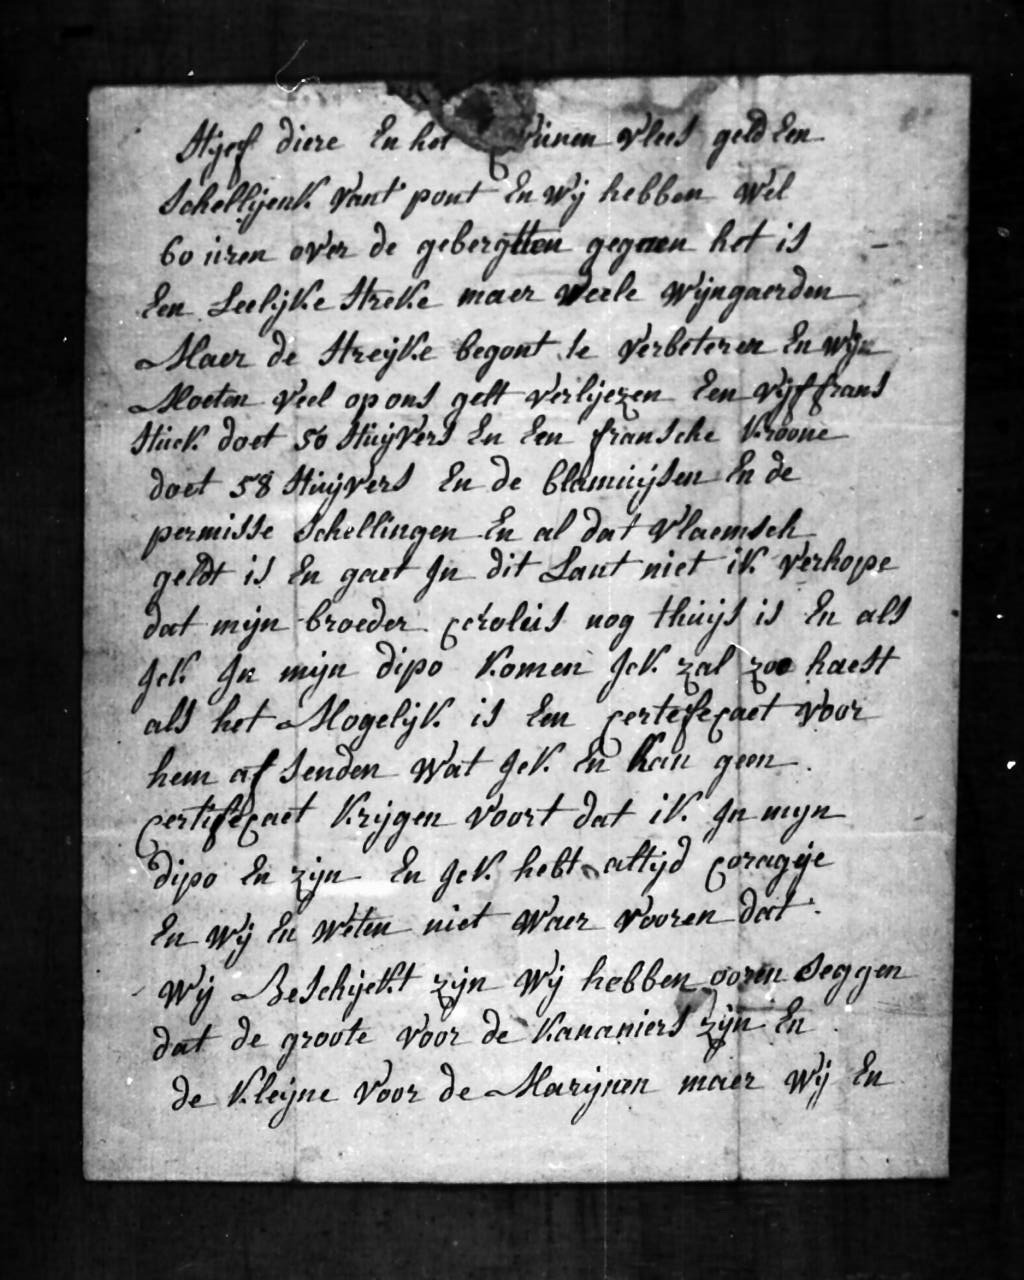 Stijef diere En het vlees geld Een
Schellijenk vant pont En wij hebben wel
60 uren over de gebergtten gegaen het is
Een Leelijke Streke maer veele wijngaerden
Maer de Streijke begont te verbeteren En wijn
Moeten veel op ons gelt verlijezen Een vijf frans
Stuck doet 50 Stuijvers En Een fransche kroone
doet 58 Stuijvers En de blamuijsen En de
permisse Schellingen En al dat vlaemsch
geldt is En gaet Jn dit Lant niet ik verhope
dat mijn broeder caroleis nog thuijs is En als
Jck Jn mijn dipo komen Jck zal zoo haest
als het Mogelijk is Een certefecaet voor
hem af Senden wat Jck En kan geen
certifecaet krijgen voort dat ik Jn mijn
dipo En zijn En Jck hebt altijd coragije
En wij En weten niet waer vooren dat
wij Beschijckt zijn wij hebben ooren Seggen
dat de groote voor de kananiers zijn En
de kleijne voor de Marijnen maer wij En